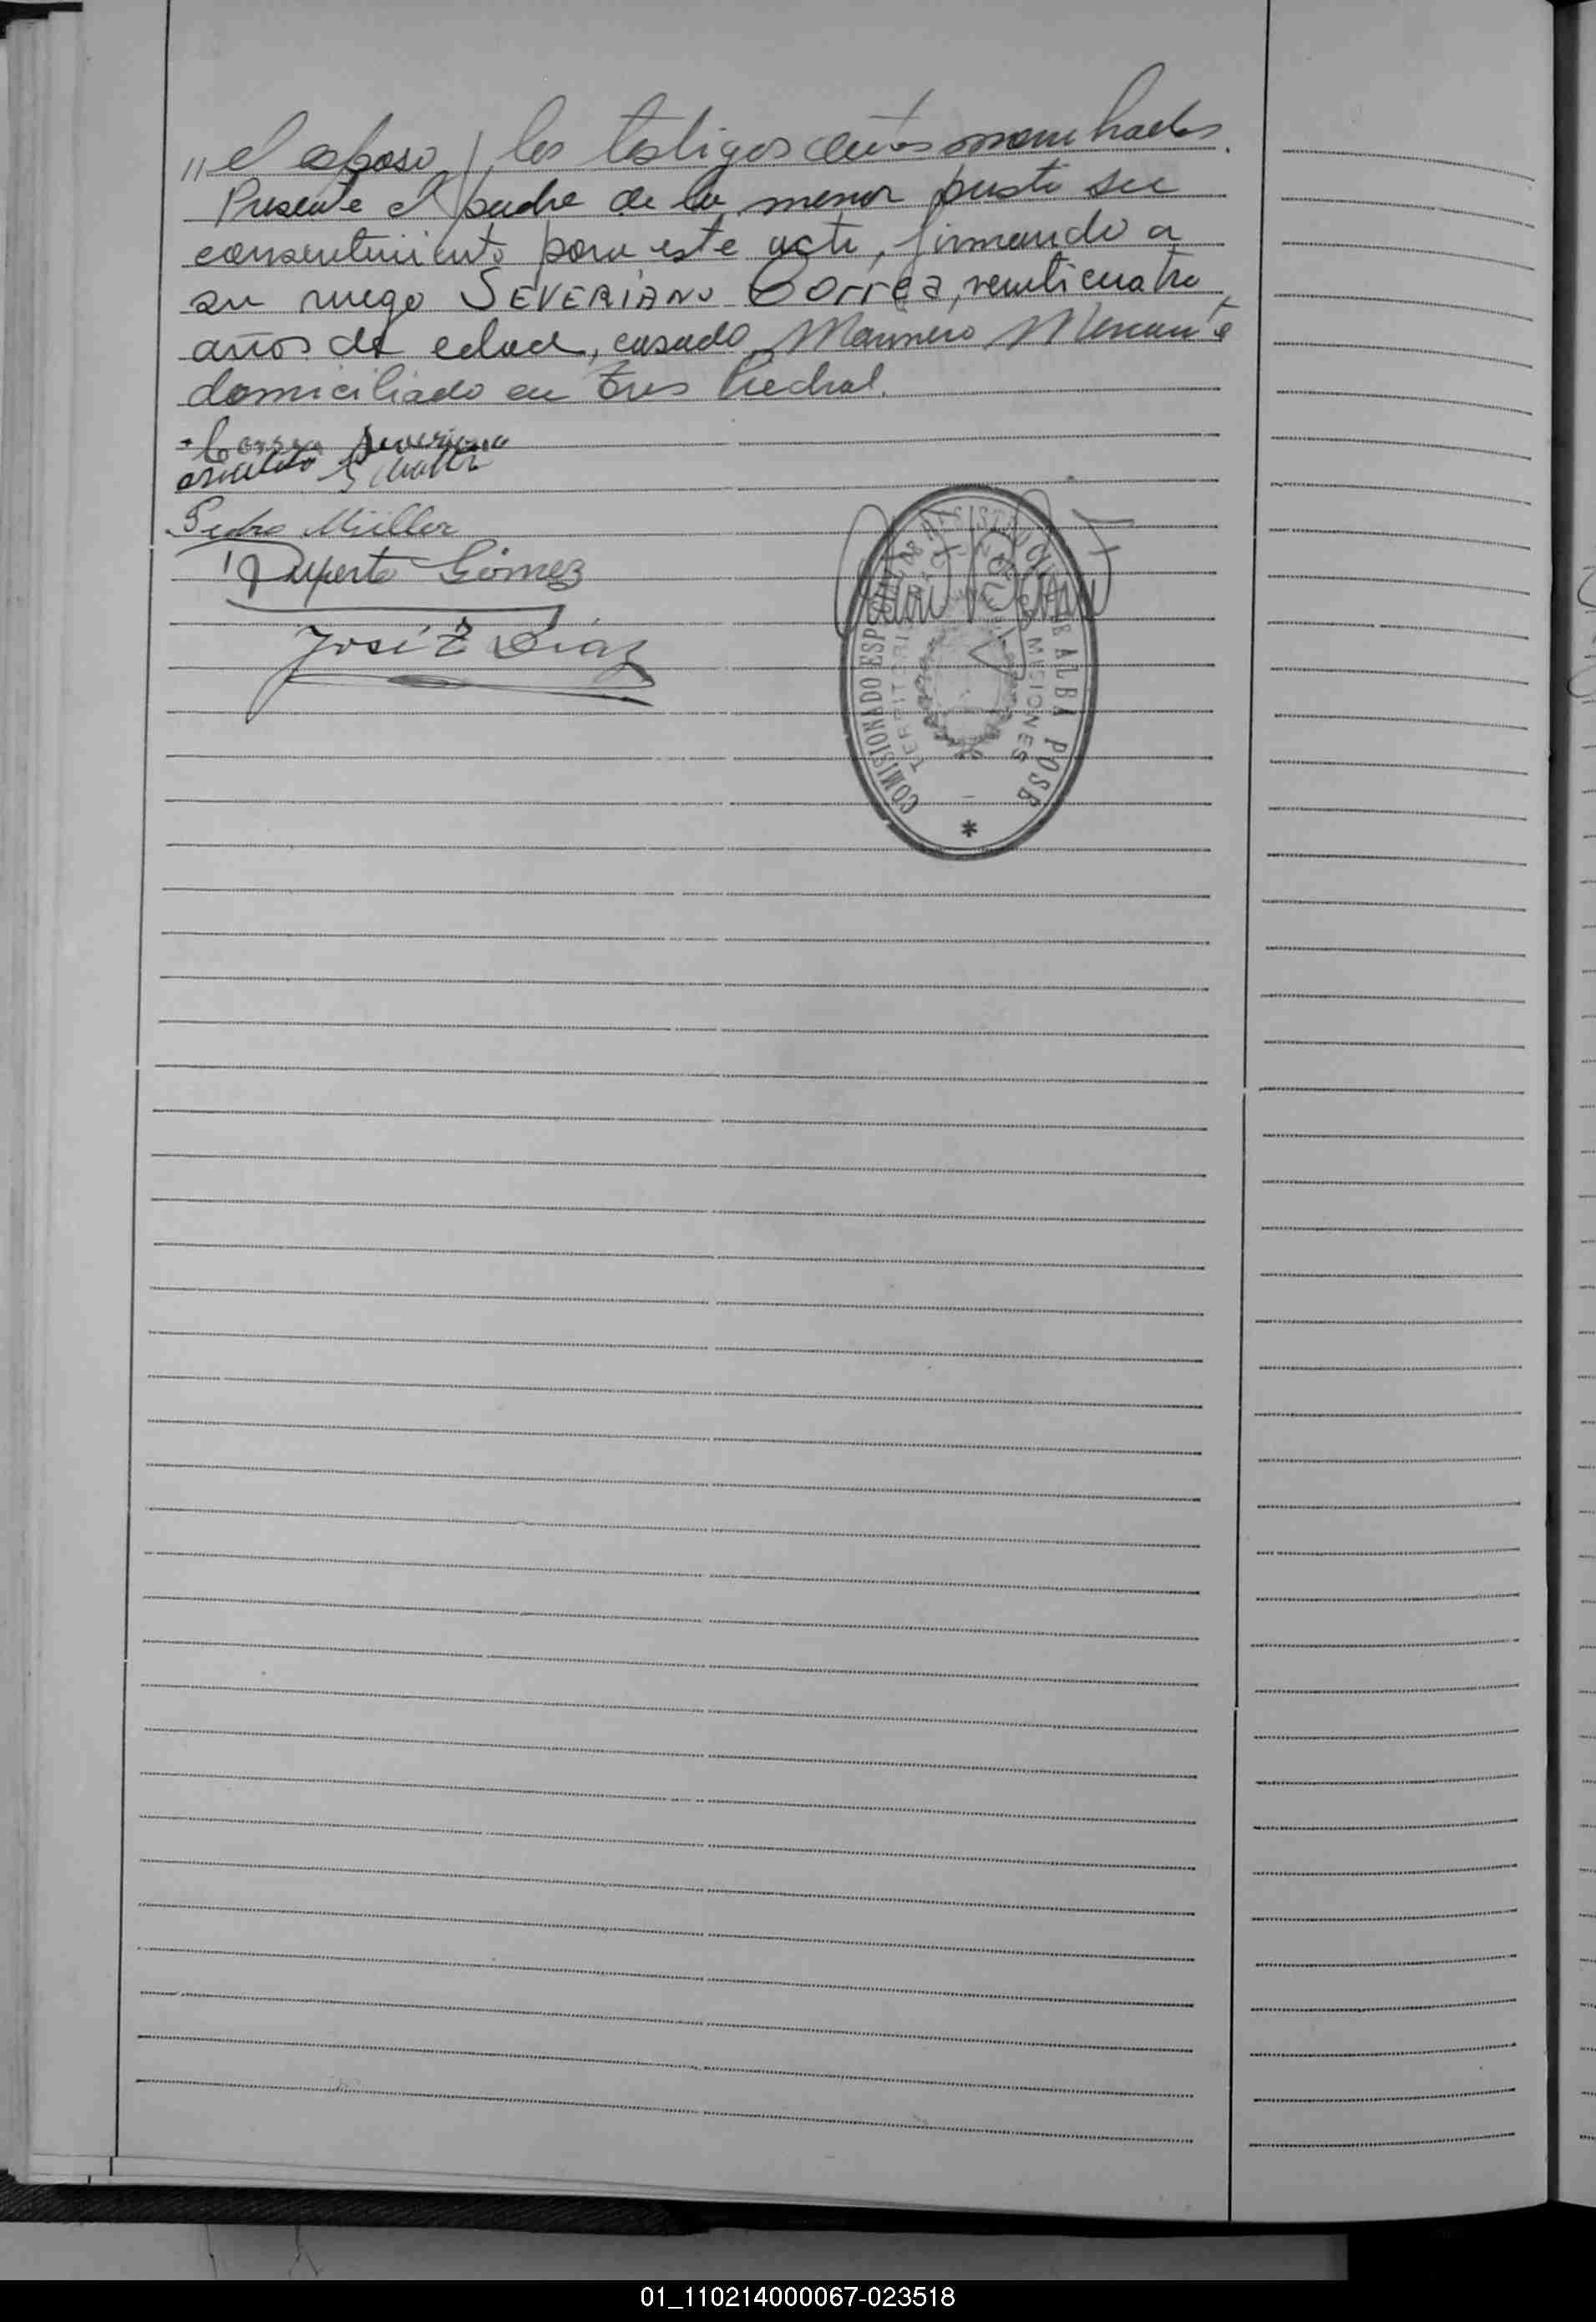 " el esposo y los testigos antes nombrados.
Presente el padre de la menor presto su
consentimiento para este acto, firmando a
su ruego SEVERIANO Correa, venticuatro
años de edad, casado, Marinero Mercante
domiciliado en Tres Piedras.
Correa Severiano
osvaldo
Pedro Müller
Ruperto Gómez
José Z Díaz
COMISIONADO ESPECIAL DE REGISTRO CIVIL DE ALBA POSE
TERRITORIO MISIONES
*
01_110214000067-023518